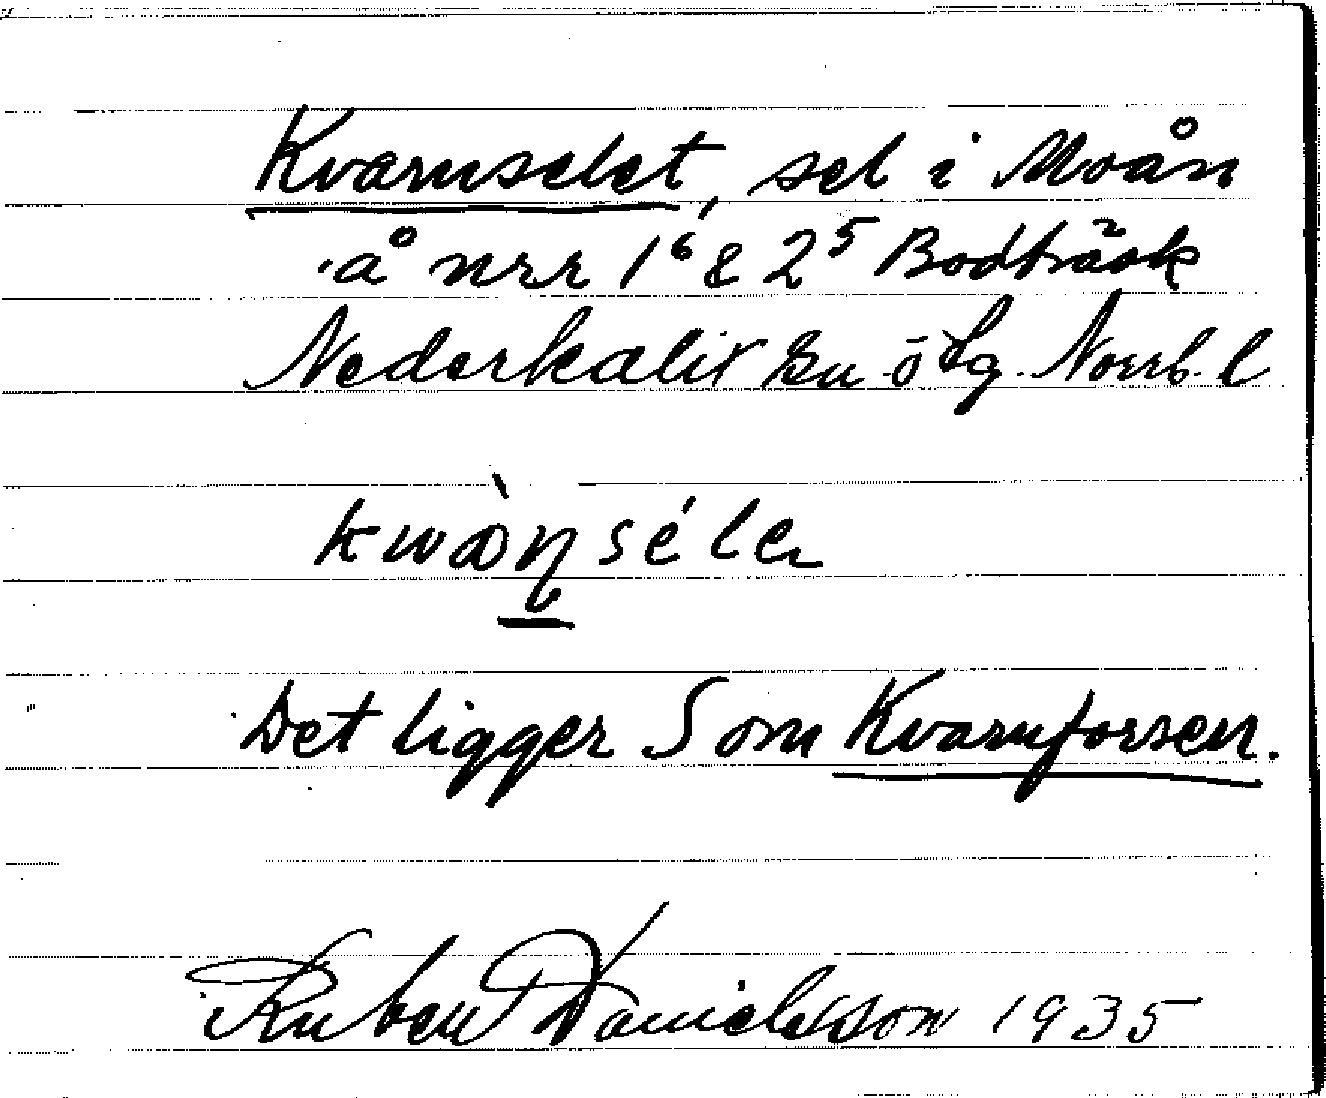 Kvarnselet, sel i Moån
å nrr 1⁶ & 2⁵ Bodträsk
Nederkalix sn ö lg. Norrb. l
kwæ̀ṇséle
Det ligger S om Kvarnforsen.
Ruben Danielsson 1935